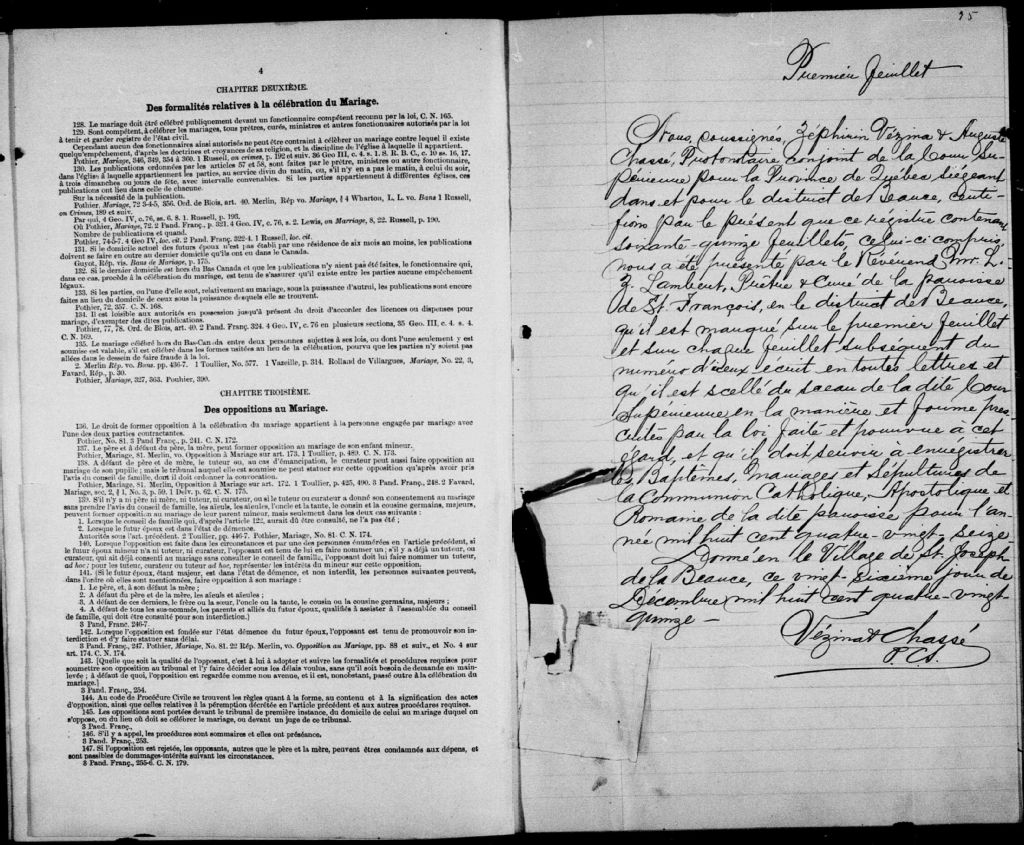 4
CHAPITRE DEUXIÈME.
Des formalités relatives à la célébration du Mariage.
128. Le mariage doit être célébré publiquement devant un fonctionnaire compétent reconnu par la loi, C. N. 165.
129. Sont compétent, à célébrer les mariages, tous prêtres, curés, ministres et autres fonctionnaires autorisés par la loi
à tenir et garder registre de l'état civil.
Cependant aucun des fonctionnaires ainsi autorisés ne peut être contraint à célébrer un mariage contre lequel il existe
quelqu'empêchement, d'après les doctrines et croyances de sa religion, et la discipline de l'église à laquelle il appartient.
Pothier, Mariage, 346, 349, 354 à 360. 1 Russell, on crimes, p. 192 et suiv. 36 Geo III, c. 4, s. 1. S. R. B. C., c. 10 ss 16, 17.
130. Les publications ordonnées par les articles 57 et 58, sont faites par le prêtre, ministre ou autre fonctionnaire,
dans l'église à laquelle appartiennent les parties, au service divin du matin, ou, s'il n'y en a pas le matin, à celui du soir,
à trois dimanches ou jours de fête, avec intervalle convenables. Si les parties appartiennent à différentes églises, ces
publications ont lieu dans celle de chacune.
Sur la nécessité de la publication.
Pothier, Mariage, 72 3-4-5, 356, Ord. de Blois, art. 40. Merlin, Rép vo. Mariage, § 4 Wharton, L. L. vo. Bans 1 Russell,
on Crimes, 189 et suiv.
Par qui, 4 Geo. IV, c. 76, ss. 6. 8. 1. Russell, p. 193.
Où Pothier, Mariage, 72. 2 Pand. Franç. p. 321. 4 Geo. IV, c. 76, s. 2. Lewis, on Marriage, 8, 22. Russell, p. 190.
Nombre de publications et quand.
Pothier, 74-5-7. 4 Geo IV, loc. cit. 2 Pand. Franç. 322-4. 1 Russell, loc. cit.
131. Si le domicile actuel des futurs époux n'est pas établi par une résidence de six mois au moins, les publications
doivent se faire en outre au dernier domicile qu'ils ont eu dans le Canada.
Guyot, Rép. vis. Bans de Mariage, p. 175.
132. Si le dernier domicile est hors du Bas Canada et que les publications n'y aient pas été faites, le fonctionnaire qui,
dans ce cas, procède à la célébration du mariage, est tenu de s'assurer qu'il existe entre les parties aucune empêchement
légaux.
133. Si les parties, ou l'une d'elles, sont, relativement au mariage, sous la puissance d'autrui, les publications sont encore
faites au lieu du domicile de ceux sous la puissance desquels elle se trouvent.
Pothier, 72, 357. C. N. 168.
134. Il est loisible aux autorités en possession jusqu'à présent du droit d'accorder des licences ou dispenses pour
mariage, d'exempter des dites publications.
Pothier, 77, 78. Ord. de Blois, art. 40. 2 Pand. Franç. 324. 4 Geo. IV, c. 76 en plusieurs sections, 35 Geo. III, c. 4. s. 4.
C. N. 169.
135. Le mariage célébré hors du Bas-Canada entre deux personnes sujettes à ses lois, ou dont l'une seulement y est
soumise est valable, s'il est célébré dans les formes usitées au lieu de la célébration, pourvu que les parties n'y soient pas
allées dans le dessein de faire fraude à la loi.
2. Merlin Rép. vo. Bans. pp. 436-7. 1 Toullier, No. 577. 1 Vazeille, p. 314. Rolland de Villargues, Mariage, No. 22, 3,
Favard, Rép., p. 30.
Pothier, Mariage, 327, 363. Pouhier, 390.
CHAPITRE TROISIÈME.
Des oppositions au Mariage.
136. Le droit de former opposition à la célébration du mariage appartient à la personne engagée par mariage avec
l'une des deux parties contractantes.
Pothier, No. 81. 3 Pand Franç., p. 241. C. N. 172.
137. Le père et à défaut du père, la mère, peut former opposition au mariage de son enfant mineur.
Pothier, Mariage, 81. Merlin, vo. Opposition à Mariage sur art. 173. 1 Toullier, p. 489. C. N. 173.
138. A défaut de père et de mère, le tuteur ou, au cas d'émancipation, le curateur peut aussi faire opposition au
mariage de son pupille; mais le tribunal auquel elle est soumise ne peut statuer sur cette opposition qu'après avoir pris
l'avis du conseil de famille, dont il doit ordonner la convocation.
Pothier, Mariage, 81. Merlin, vo. Opposition à Mariage sur art. 172. 1 Toullier, p. 425, 490. 3 Pand. Franç., 248. 2 Favard,
Mariage, sec. 2, § 1, No. 3, p. 59. 1 Delv. p. 62. C. N. 175.
139. S'il n'y a ni père ni mère, ni tuteur, ni curateur, ou si le tuteur ou curateur a donné son consentement au mariage
sans prendre l'avis du conseil de famille, les aïeuls, les aïeules, l'oncle et la tante, le cousin et la cousine germains, majeurs,
peuvent former opposition au mariage de leur parent mineur, mais seulement dans les deux cas suivants :
1. Lorsque le conseil de famille qui, d'après l'article 122, aurait dû être consulté, ne l'a pas été ;
2. Lorsque le futur époux est dans l'état de démence.
Autorités sous l'art. précédent. 2 Toullier, pp. 446-7. Pothier, Mariage, No. 81. C. N. 174.
140. Lorsque l'opposition est faite dans les circonstances et par une des personnes énumérées en l'article précédent, si
le futur époux mineur n'a ni tuteur, ni curateur, l'opposant est tenu de lui en faire nommer un ; s'il y a déjà un tuteur, ou
curateur, qui ait déjà consenti au mariage sans consulter le conseil de famille, l'opposant doit lui faire nommer un tuteur,
ad hoc; pour les tuteur, curateur ou tuteur ad hoc, représenter les intérêts du mineur sur cette opposition.
141. (Si le futur époux, étant majeur, est dans l'état de démence, et non interdit, les personnes suivantes peuvent,
dans l'ordre où elles sont mentionnées, faire opposition à son mariage :
1. Le père, et, à son défaut la mère ;
2. A défaut du père et de la mère, les aïeuls et aïeules ;
3. A défaut de ces derniers, le frère ou la sœur, l'oncle ou la tante, le cousin ou la cousine germains, majeurs ;
4. A défaut de tous les sus-nommés, les parents et alliés du futur époux, qualifiés à assister à l'assemblée du conseil
de famille, qui doit être consulté pour son interdiction.)
3 Pand, Franç. 246-7.
142. Lorsque l'opposition est fondée sur l'état démence du futur époux, l'opposant est tenu de promouvoir son in-
terdiction et d'y faire statuer sans délai.
3 Pand. Franç., 247. Pothier, Mariage, No. 81. 22 Rép. Merlin, vo. Opposition au Mariage, pp. 88 et suiv., et No. 4 sur
art. 174. C. N. 174.
143. [Quelle que soit la qualité de l'opposant, c'est à lui à adopter et suivre les formalités et procédures requises pour
soumettre son opposition au tribunal et l'y faire décider sous les délais voulus, sans qu'il soit besoin de demande en main-
levée ; à défaut de quoi, l'opposition est regardée comme non avenue, et il est, nonobstant, passé outre à la célébration du
mariage.]
3 Pand. Franç., 254.
144. Au code de Procédure Civile se trouvent les règles quant à la forme, au contenu et à la signification des actes
d'opposition, ainsi que celles relatives à la péremption décrétée en l'article précédent et aux autres procédures requises.
145. Les oppositions sont portées devant le tribunal de première instance, du domicile de celui au mariage duquel on
s'oppose, ou du lieu où doit se célébrer le mariage, ou devant un juge de ce tribunal.
3 Pand. Franç.,
146. S'il y a appel, les procédures sont sommaires et elles ont préséance.
3 Pand. Franç., 253.
147. Si l'opposition est rejetée, les opposants, autres que le père et la mère, peuvent êtres condamnés aux dépens, et
sont passibles de dommages-intérêts suivant les circonstances.
3 Pand. Franç., 255-6. C. N. 179.
Premier feuillet
Nous, soussignés, Zéphirin Vézina & Auguste
Chassé, Protonotaire conjoint de la Cour Su-
périeure pour la Province de Québec siégeant
dans et pour le district de Beauce, certi-
fions par le présent que ce régistre contenant
soixante-quinze feuillets, celui-ci compris,
nous a été présenté par le Révérend Mr. L.
Z. Lambert, Prêtre & Curé de la paroisse
de St. François, en le district de Beauce,
qu'il est marqué sur le premier feuillet
et sur chaque feuillet subséquent du
numéro d'iceux écrit en toutes lettres et
qu'il est scellé du sceau de la dite Cour
Supérieure, en la manière et forme pres-
crites par la loi faite et pourvue à cet
égard, et qu'il doit servir à enrégistrer
les Baptêmes, mariages et Sépultures de
la Communion Catholique, Apostolique et
Romaine de la dite paroisse pour l'an-
née mil huit cent quatre-vingt-seize.
Donné en le Village de St. Joseph
de la Beauce, ce vingt-sixième jour de
Décembre mil huit cent quatre-vingt-
quinze —
Vézina & Chassé
P. C. S.